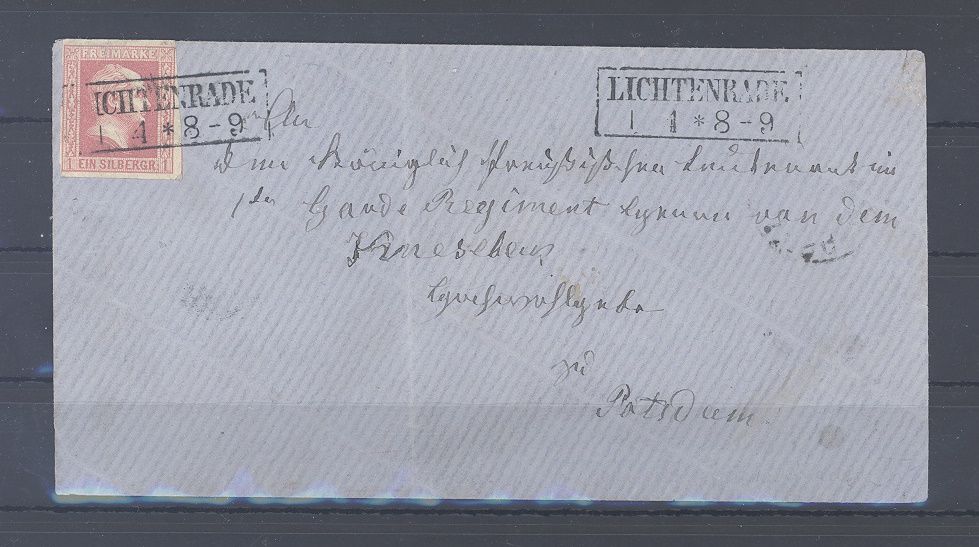 FREIMARKE
1 EIN SILBERGR. 1
ICHTENRADE
1 4 * 8 - 9
LICHTENRADE
1 4 * 8 - 9
An
dem Königlich Preußischen Leutenant im
1ten Garde Regiment Herrn von dem
Knesebeck
Hochwohlgebo
zu
Potsdam